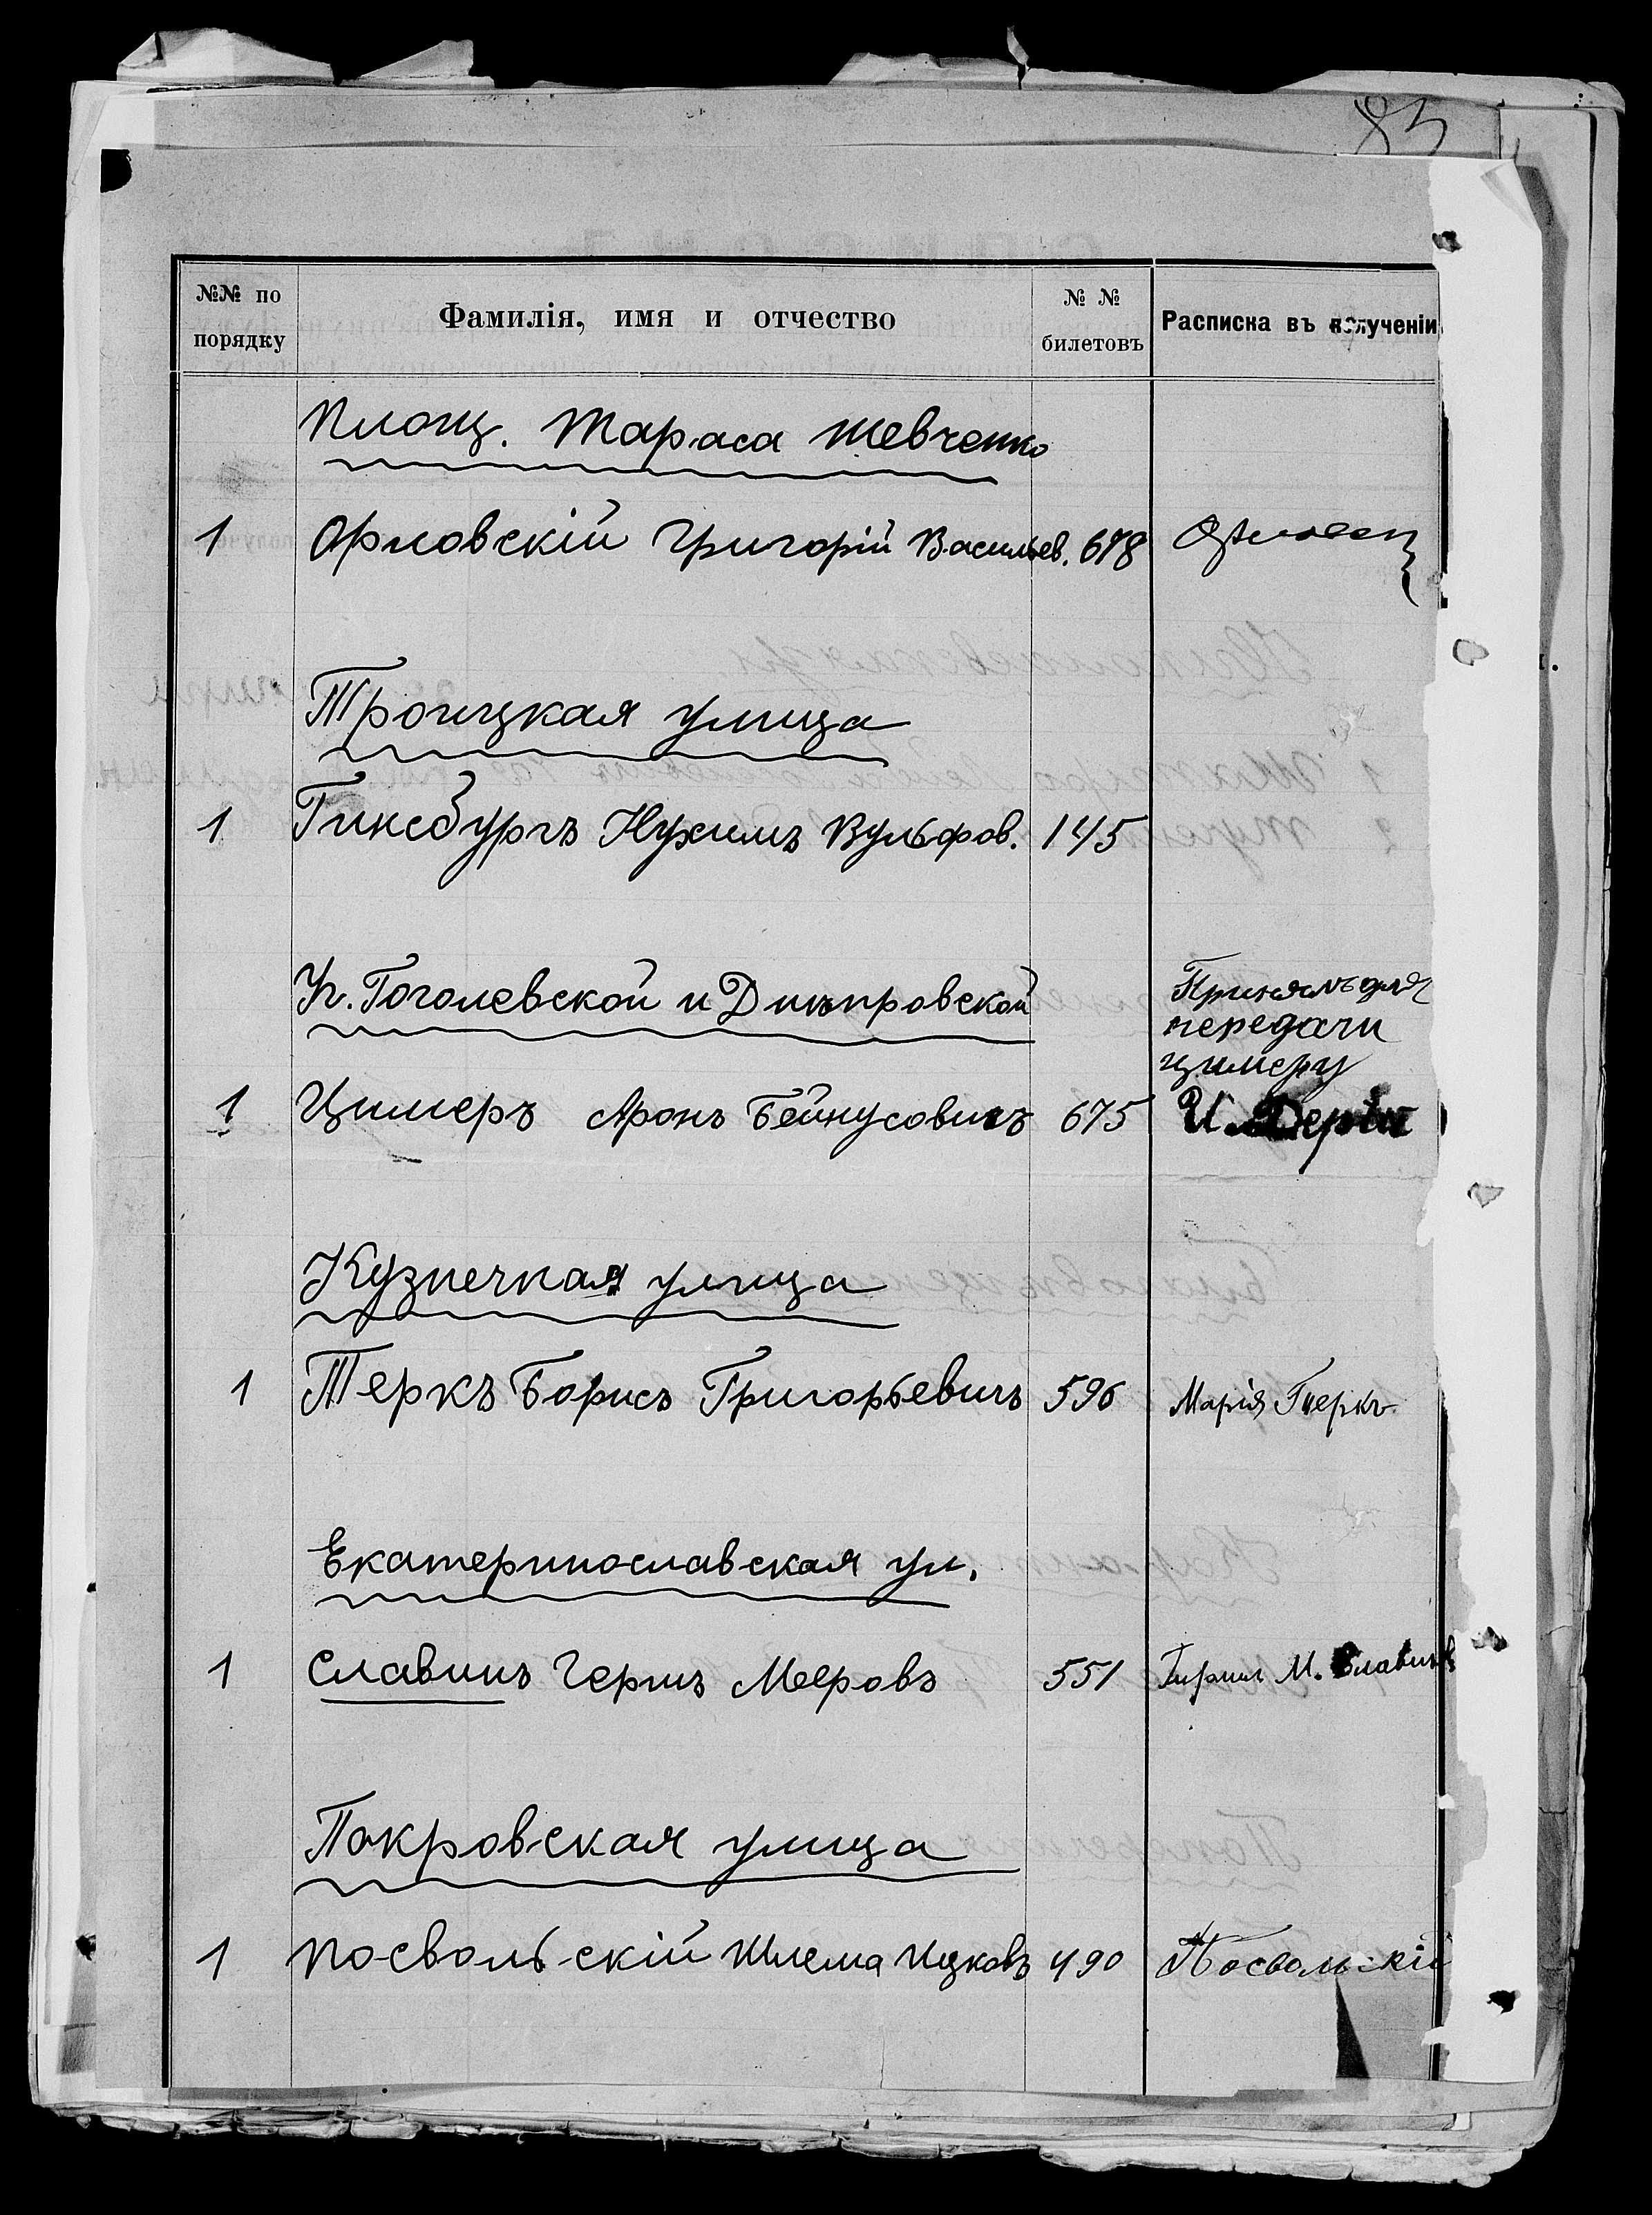 83
№№ по порядку
Фамилія, имя и отчество
№ № билетовъ
Расписка въ полученіи
Площ. Тараса Шевченко
1 Орловскій Григорій Васильев. 678
Троицкая улица
1 Гинсбургъ Нухимъ Вульфов. 145
Уг. Гоголевской и Днѣпровской
Принялъ для
передачи
Цимеру
1 Цимеръ Аронъ Бейнусовичъ 675 И.
Кузнечная улица
1 Теркъ Борисъ Григорьевичъ 596 Марія Теркъ
Екатеринославская ул.
1 Славинъ Гершъ Мееровъ 551 М. Славинъ
Покровская улица
1 Посвольскій Шлема Ицковъ 490 Посвольскій